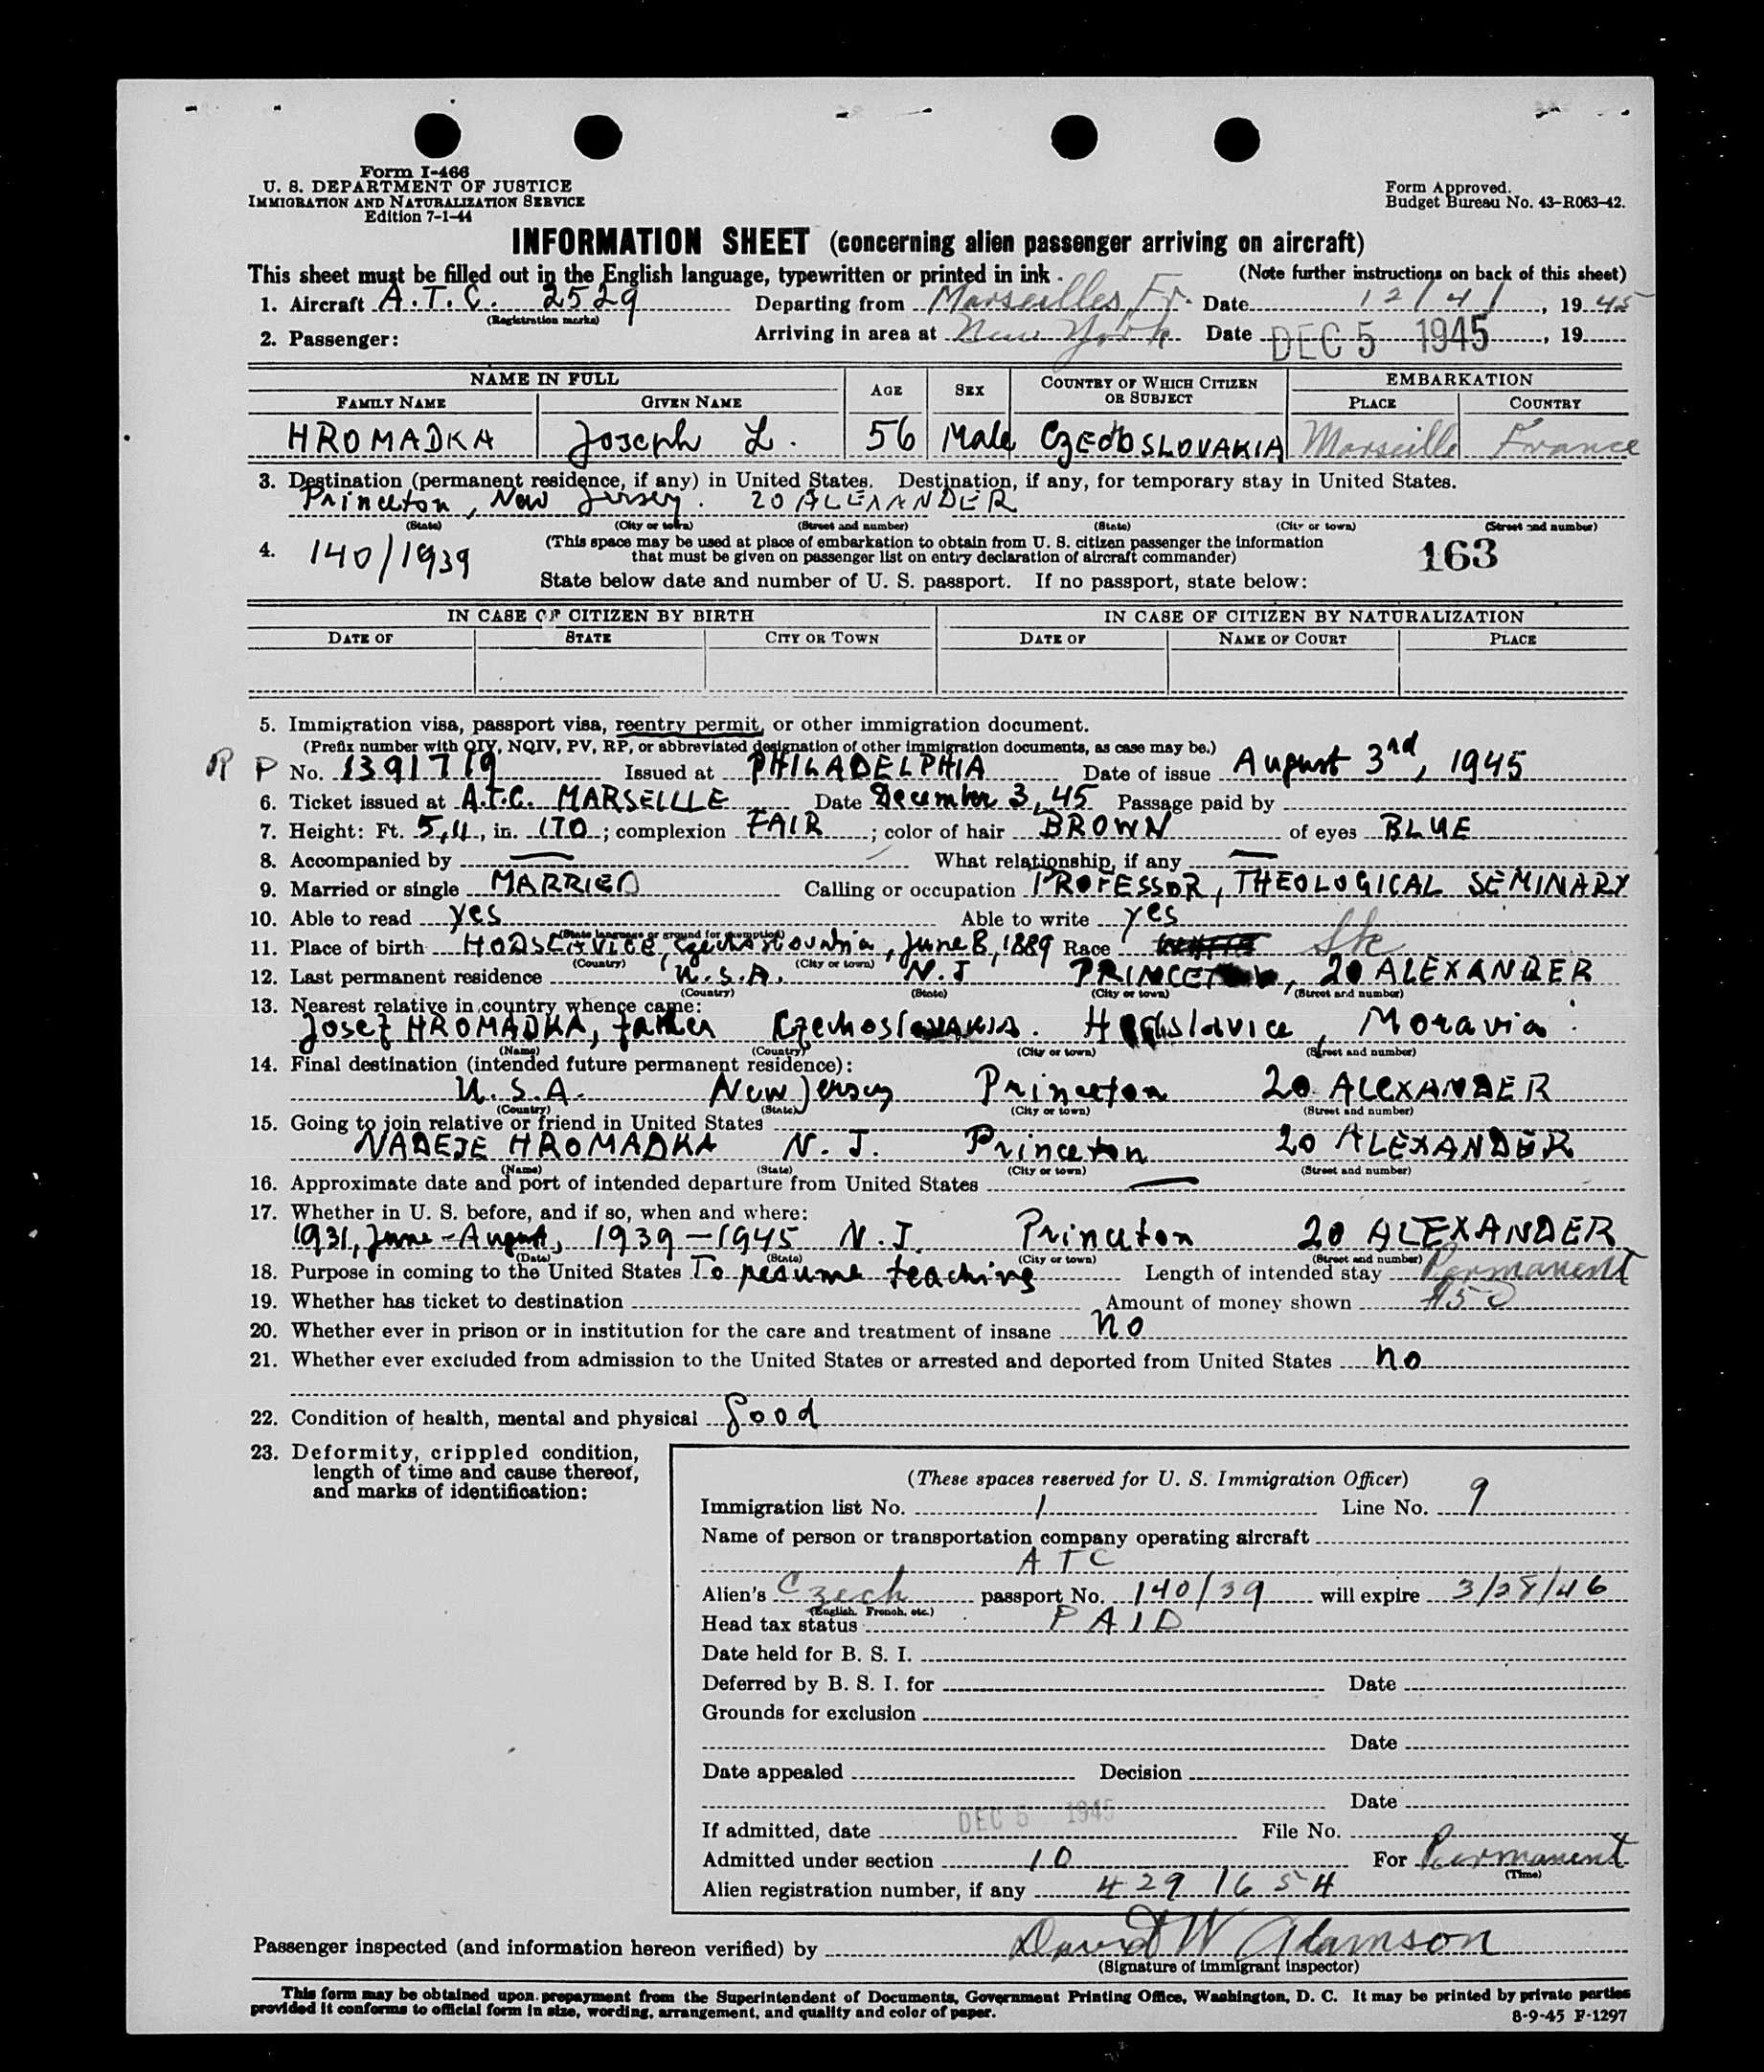 Form I-466
U. S. DEPARTMENT OF JUSTICE
IMMIGRATION AND NATURALIZATION SERVICE
Edition 7-1-44
Form Approved.
Budget Bureau No. 43-R063-42.
INFORMATION SHEET (concerning alien passenger arriving on aircraft)
This sheet must be filled out in the English language, typewritten or printed in ink. (Note further instructions on back of this sheet)
1. Aircraft A.T.C. 2529 Departing from Marseilles, Fr. Date 12/4/, 1945
(Registration marks)
2. Passenger: Arriving in area at New York Date DEC 5 1945, 19
NAME IN FULL AGE SEX COUNTRY OF WHICH CITIZEN OR SUBJECT EMBARKATION
FAMILY NAME GIVEN NAME PLACE COUNTRY
HROMADKA Joseph L. 56 Male CZECHOSLOVAKIA Marseille France
3. Destination (permanent residence, if any) in United States. Destination, if any, for temporary stay in United States.
Princeton, New Jersey. 20 ALEXANDER
(State) (City or town) (Street and number) (State) (City or town) (Street and number)
4. 140/1939 (This space may be used at place of embarkation to obtain from U. S. citizen passenger the information
that must be given on passenger list on entry declaration of aircraft commander) 163
State below date and number of U. S. passport. If no passport, state below:
IN CASE OF CITIZEN BY BIRTH IN CASE OF CITIZEN BY NATURALIZATION
DATE OF STATE CITY OR TOWN DATE OF NAME OF COURT PLACE
5. Immigration visa, passport visa, reentry permit, or other immigration document.
(Prefix number with QIV, NQIV, PV, RP, or abbreviated designation of other immigration documents, as case may be.)
R P No. 1391719 Issued at PHILADELPHIA Date of issue August 3rd, 1945
6. Ticket issued at A.T.C. MARSEILLE Date December 3, 45 Passage paid by
7. Height: Ft. 5,11, in. 170; complexion FAIR; color of hair BROWN of eyes BLUE
8. Accompanied by — What relationship, if any —
9. Married or single MARRIED Calling or occupation PROFESSOR, THEOLOGICAL SEMINARY
10. Able to read yes Able to write yes
(State language or ground for exemption)
11. Place of birth Czechoslovakia, June 8, 1889 Race
(Country) (City or town)
12. Last permanent residence U.S.A. N.J PRINCETON, 20 ALEXANDER
(Country) (State) (City or town) (Street and number)
13. Nearest relative in country whence came:
Josef HROMADKA, father Czechoslovakia. Hodslavice, Moravia.
(Name) (Country) (City or town) (Street and number)
14. Final destination (intended future permanent residence):
U.S.A. New Jersey Princeton 20 ALEXANDER
(Country) (State) (City or town) (Street and number)
15. Going to join relative or friend in United States
NADEJE HROMADKA N. J. Princeton 20 ALEXANDER
(Name) (State) (City or town) (Street and number)
16. Approximate date and port of intended departure from United States —
17. Whether in U. S. before, and if so, when and where:
1931, June - August, 1939-1945 N.J. Princeton 20 ALEXANDER
(Date) (State) (City or town) (Street and number)
18. Purpose in coming to the United States To resume teaching Length of intended stay Permanent
19. Whether has ticket to destination Amount of money shown $50
20. Whether ever in prison or in institution for the care and treatment of insane no
21. Whether ever excluded from admission to the United States or arrested and deported from United States no
22. Condition of health, mental and physical good
23. Deformity, crippled condition,
length of time and cause thereof,
and marks of identification:
(These spaces reserved for U. S. Immigration Officer)
Immigration list No. 1 Line No. 9
Name of person or transportation company operating aircraft
ATC
Alien's Czech passport No. 140/39 will expire 3/28/46
(English, French, etc.)
Head tax status PAID
Date held for B. S. I.
Deferred by B. S. I. for Date
Grounds for exclusion
Date
Date appealed Decision
Date
If admitted, date DEC 5 1945 File No.
Admitted under section 10 For Permanent
(Time)
Alien registration number, if any 4291654
Passenger inspected (and information hereon verified) by David W Adamson
(Signature of immigrant inspector)
This form may be obtained upon prepayment from the Superintendent of Documents, Government Printing Office, Washington, D. C. It may be printed by private parties
provided it conforms to official form in size, wording, arrangement, and quality and color of paper.
8-9-45 F-1297